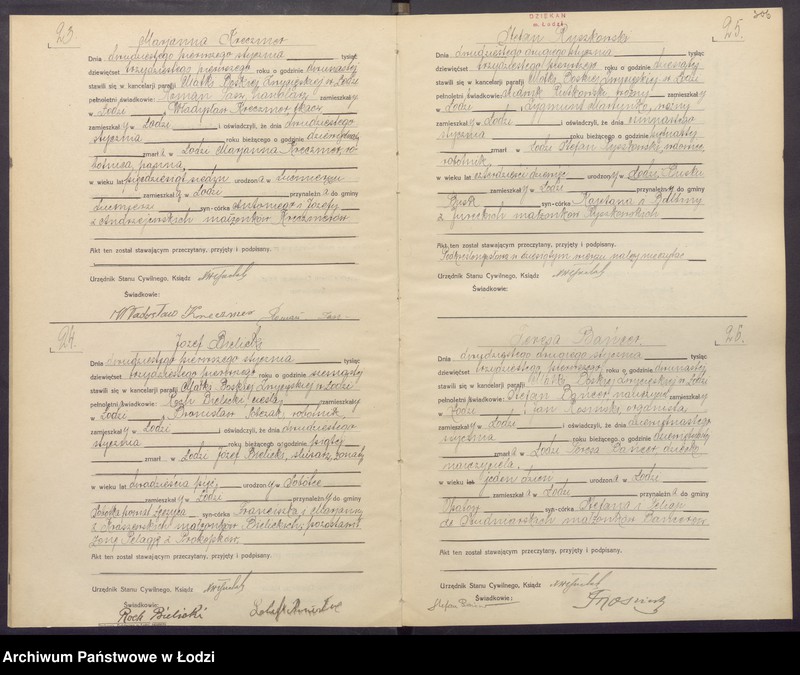 23.
Marjanna Kreczmer
Dnia dwudziestego pierwszego stycznia tysiąc
dziewięćset trzydziestego pierwszego roku o godzinie dwunastej
stawili się w kancelarji parafji Matki Boskiej Zwycięskiej w Łodzi
pełnoletni świadkowie: Roman zamieszkały
w Łodzi i Władysław Kreczmer, tkacz
zamieszkały w Łodzi i oświadczyli, że dnia dwudziestego
stycznia roku bieżącego o godzinie
zmarła w Łodzi Marjanna Kreczmer, ro-
botnica, panna,
w wieku lat pięćdziesiąt siedem urodzona w
zamieszkała w Łodzi przynależna do gminy
syn-córka Antoniego i Józefy
z Andrzejewskich małżonków Kreczmerów
Akt ten został stawającym przeczytany, przyjęty i podpisany.
Urzędnik Stanu Cywilnego, Ksiądz
Świadkowie:
Władysław Kreczmer Roman
24.
Józef Bielicki
Dnia dwudziestego pierwszego stycznia tysiąc
dziewięćset trzydziestego pierwszego roku o godzinie
stawili się w kancelarji parafji Matki Boskiej Zwycięskiej w Łodzi
pełnoletni świadkowie: Roch Bielicki zamieszkały
w Łodzi i Bronisław robotnik
zamieszkały w Łodzi i oświadczyli, że dnia dwudziestego
stycznia roku bieżącego o godzinie piątej
zmarł w Łodzi Józef Bielicki, ślusarz, żonaty
w wieku lat dwadzieścia pięć urodzony w Sobótce
zamieszkały w Łodzi przynależny do gminy
Sobótka powiat Łęczyca syn-córka Franciszka i Marjanny
z małżonków Bielickich; pozostawił
żonę Pelagję z Prokopków.
Akt ten został stawającym przeczytany, przyjęty i podpisany.
Urzędnik Stanu Cywilnego, Ksiądz
Świadkowie:
Roch Bielicki
DZIEKAN
m. Łodzi
306
25.
Stefan Ryszkowski
Dnia dwudziestego drugiego stycznia tysiąc
dziewięćset trzydziestego pierwszego roku o godzinie dziesiątej
stawili się w kancelarji parafji Matki Boskiej Zwycięskiej w Łodzi
pełnoletni świadkowie: zamieszkały
w Łodzi i Zygmunt woźny
zamieszkały w Łodzi i oświadczyli, że dnia
stycznia roku bieżącego o godzinie
zmarł w Łodzi Stefan Ryszkowski, wdowiec,
robotnik
w wieku lat czterdzieści urodzony w Busku
zamieszkały w Łodzi przynależny do gminy
Busk syn-córka Kajetana i Balbiny
z małżonków Ryszkowskich
Akt ten został stawającym przeczytany, przyjęty i podpisany.
Urzędnik Stanu Cywilnego, Ksiądz
Świadkowie:
26.
Teresa Bancer
Dnia dwudziestego drugiego stycznia tysiąc
dziewięćset trzydziestego pierwszego roku o godzinie dwunastej
stawili się w kancelarji parafji Matki Boskiej Zwycięskiej w Łodzi
pełnoletni świadkowie: Stefan Bancer nauczyciel zamieszkały
w Łodzi i Jan organista
zamieszkały w Łodzi i oświadczyli, że dnia dziewiętnastego
stycznia roku bieżącego o godzinie
zmarła w Łodzi Teresa Bancer, córka
nauczyciela,
w wieku lat jeden dzień urodzona w Łodzi
zamieszkała w Łodzi przynależna do gminy
syn-córka Stefana i Felicji
małżonków Bancerów
Akt ten został stawającym przeczytany, przyjęty i podpisany.
Urzędnik Stanu Cywilnego, Ksiądz
Świadkowie:
Stefan
Archiwum Państwowe w Łodzi